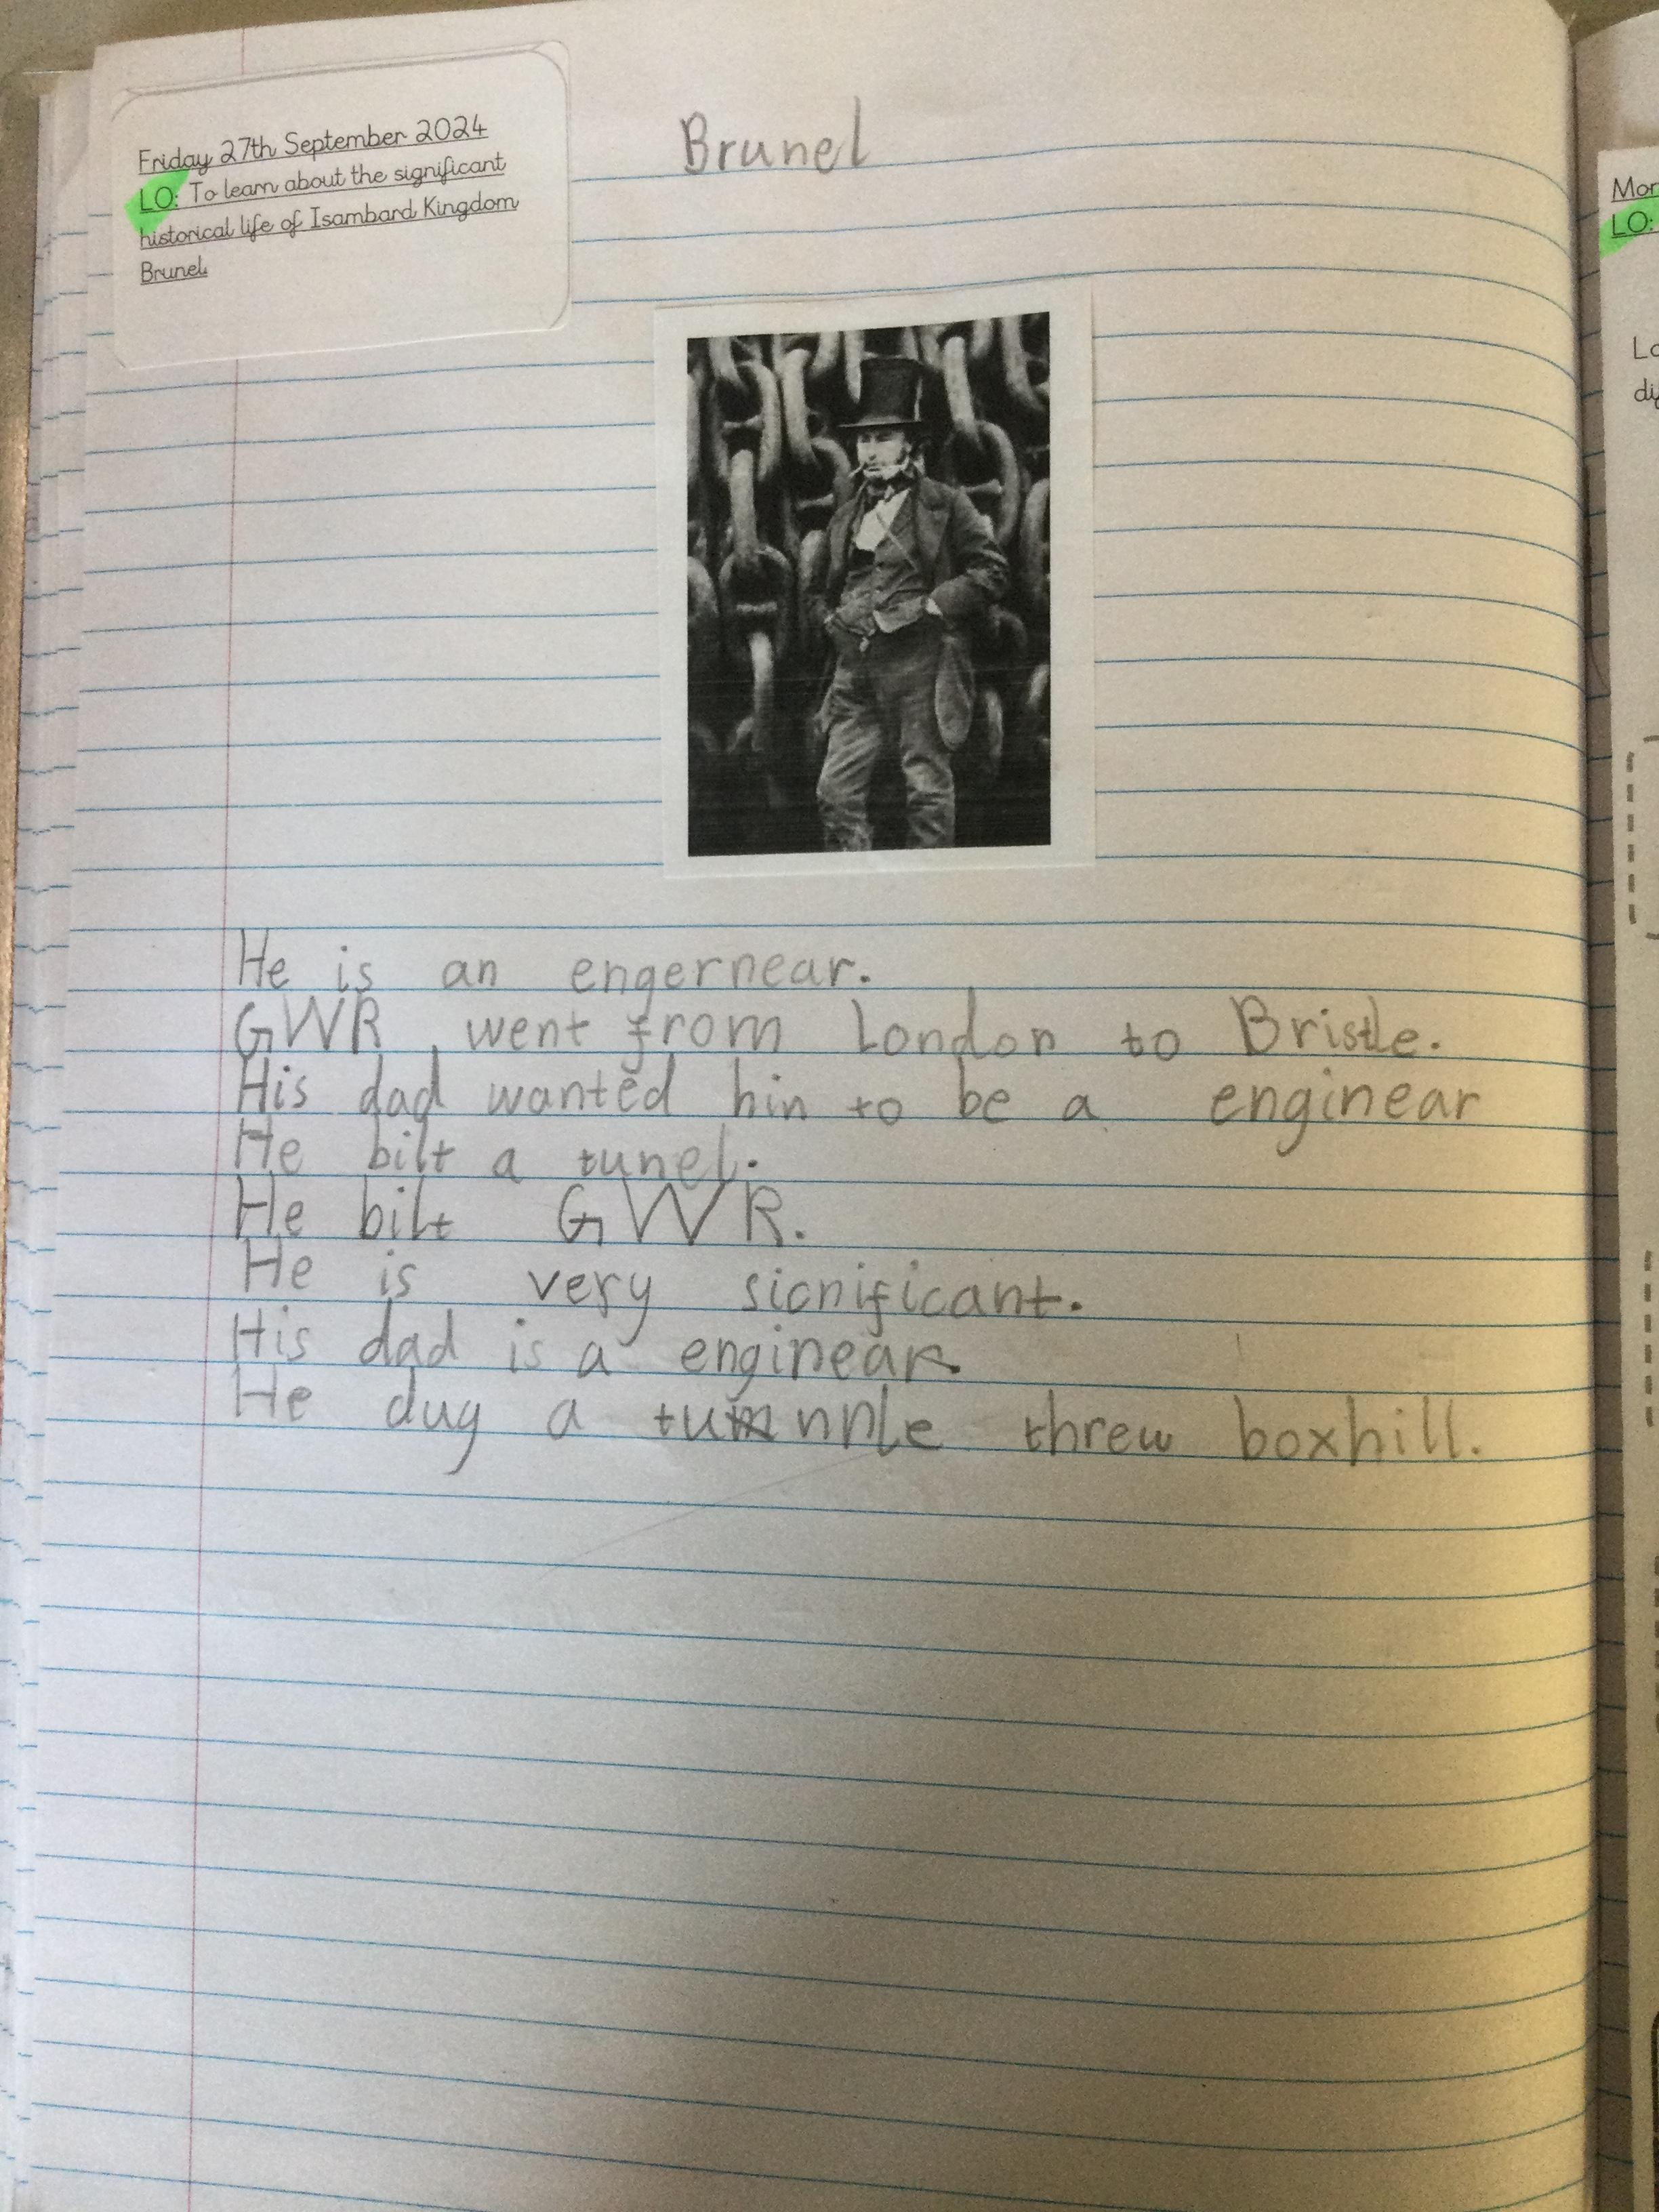 Friday 27th September 2024
LO: To learn about the significant
historical life of Isambard Kingdom
Brunel
Brunel
He is an engernear.
GWR went from London to Bristle.
His dad wanted hin to be a enginear
He bilt a tunel.
He bilt GWR.
He is very sicnificant.
His dad is a enginear.
He dug a tunnle threw boxhill.
Mon
LO:
Lo
di